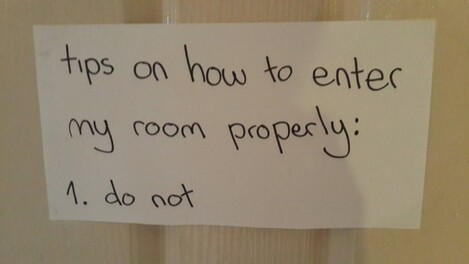 tips on how to enter
my room properly:
1. do not